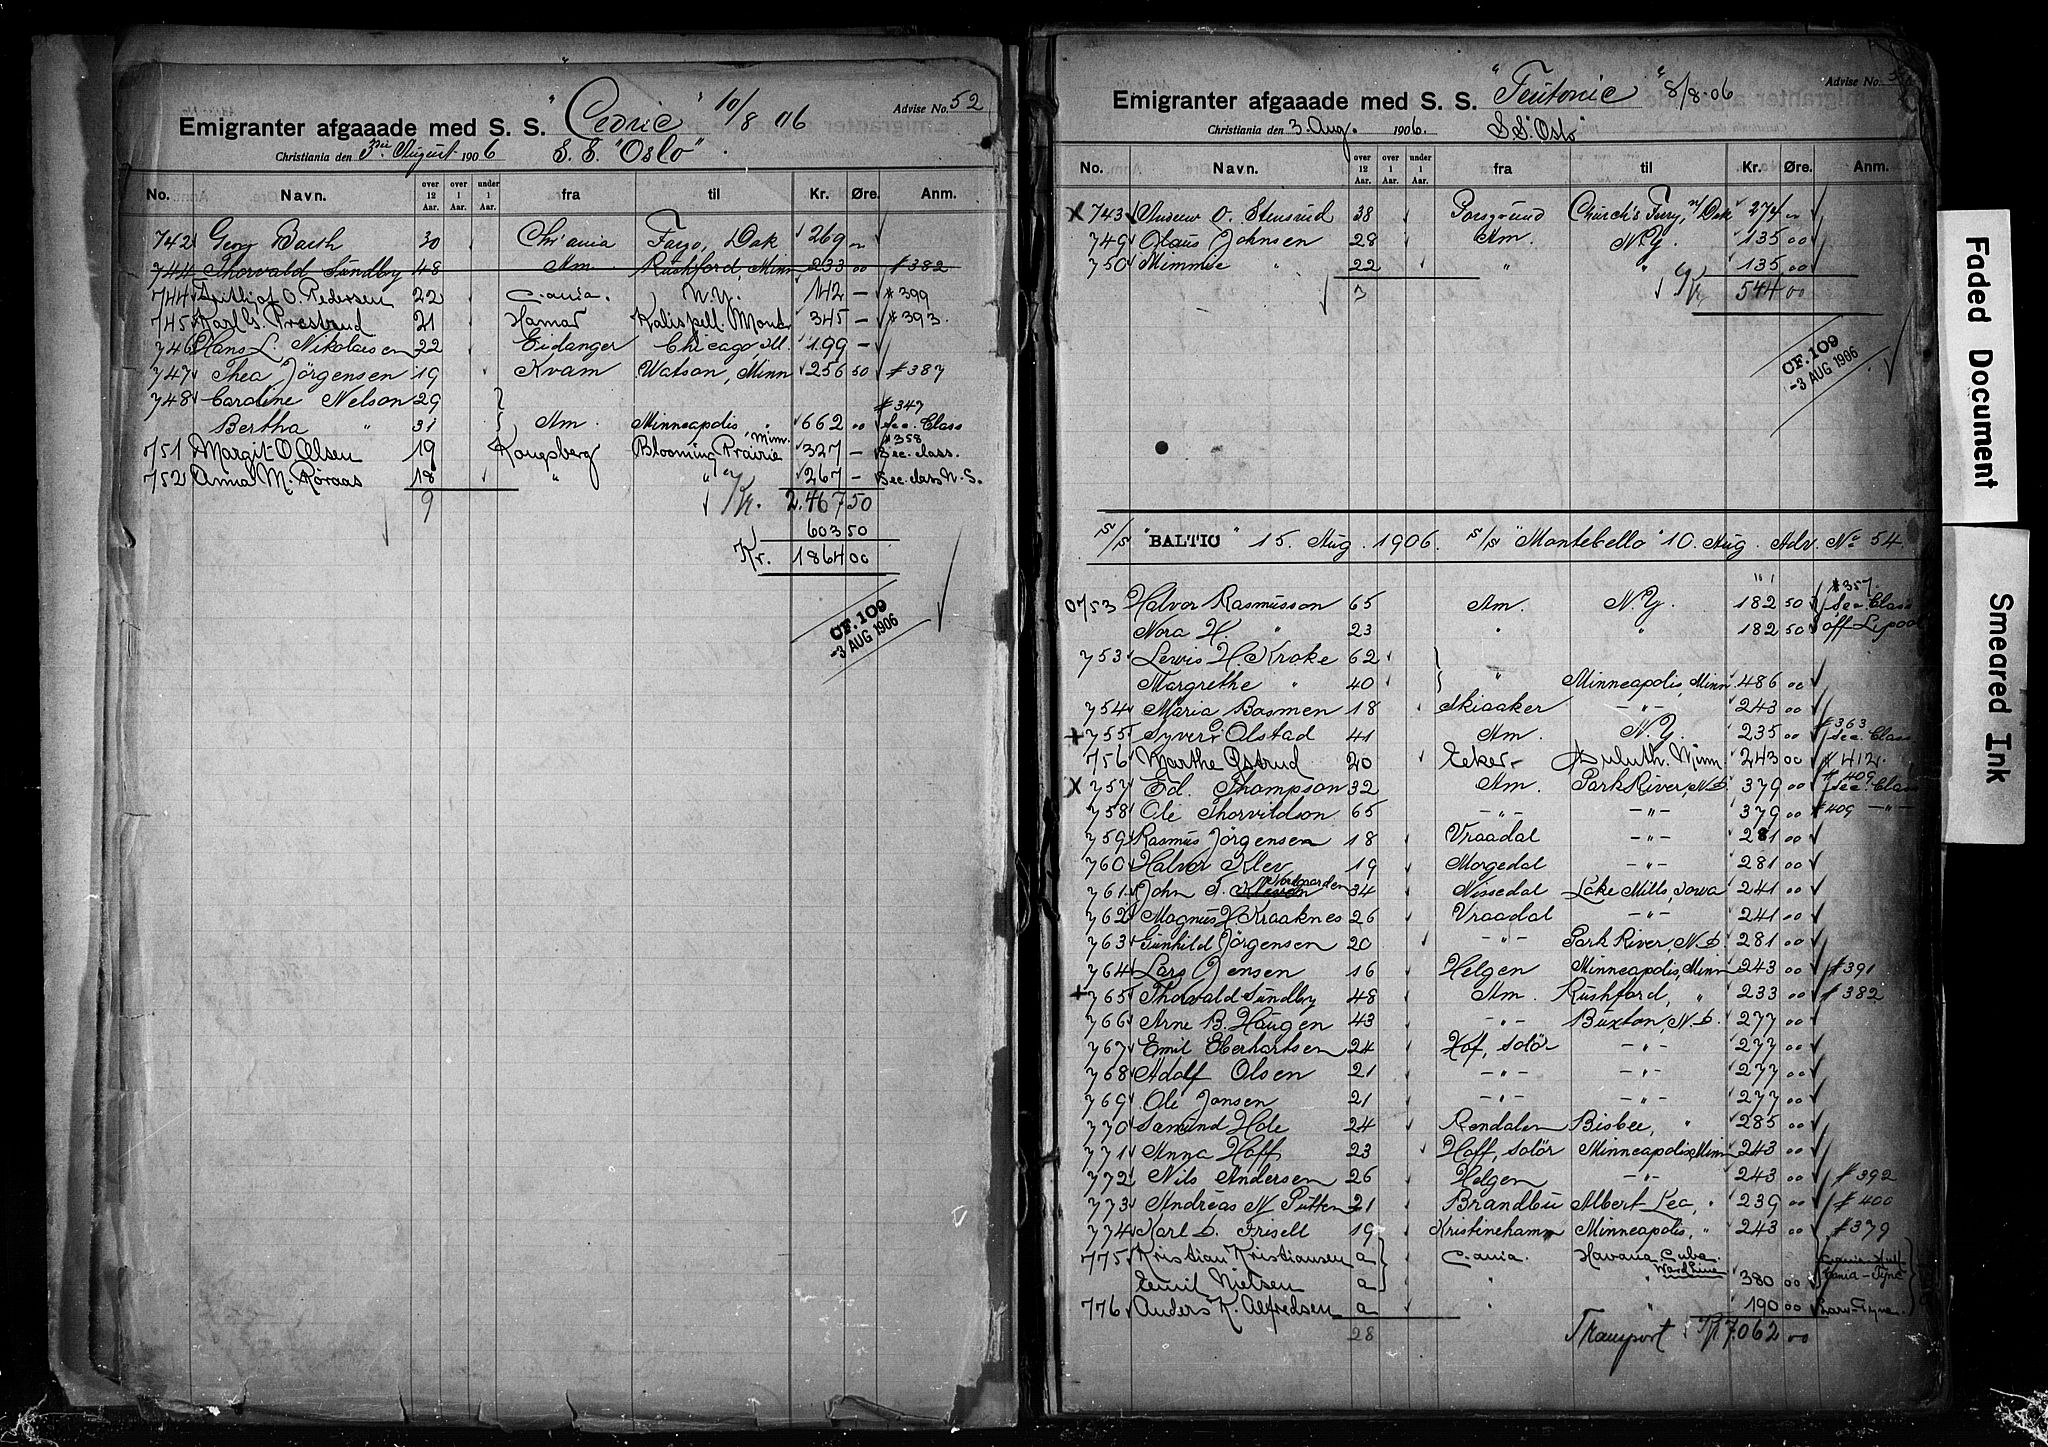 Advise No. 52
Emigranter afgaaade med S. S. "Cedric" 10/8 06
Christiania den 3die August 1906 S. S. "Oslo".
No. Navn. over 12 Aar. over 1 Aar. under 1 Aar. fra til Kr. Øre. Anm.
742 Georg Barth 30 Chr'ania Fargo, Dak 269 "
744 Thorvald Sundby 48 Am. Rushford, Minn 233 00 #382
744 Frithjof O. Pedersen 22 C.ania. N.Y. 142 — #399
745 Karl G. Prestrud 21 Hamar Kalispell. Mont 345 — #393.
746 Hans L. Nikolaisen 22 Eidanger Chicago, Ill. 199 —
747 Thea Jörgensen 19 Kvam Watson, Minn 256 50 #387
748 Caroline Nelson 29 #347
Bertha " 31 Am. Minneapolis " 662 00 Sec. Class
751 Margit O. Olsen 19 Kongsberg Blooming Prairie, Minn. 327 — #358 Sec. class.
752 Anna M. Røraas 18 " " " 267 — Sec. class N.S.
9 Kr. 2.467 50
603 50
Kr. 1864 00
CF. 109
-3 AUG 1906
Advise No.
Emigranter afgaaade med S. S. "Teutonic" 8/8-06
Christiania den 3. Aug. 1906. S.S. "Oslo"
No. Navn. over 12 Aar. over 1 Aar. under 1 Aar. fra til Kr. Øre. Anm.
X 743 Andrew O. Stensrud 38 Porsgrund Church's Ferry, N/Dak 274 "
749 Olaus Johnsen 28 Am. N.Y. 135 00
750 Mimmie " 22 " " 135 00
3 Kr 544 00
CF. 109
-3 AUG 1906
S/S "BALTIC" 15. Aug. 1906. S/S "Montebello" 10. Aug. Adv. No 54.
0753 Halvor Rasmusson 65 Am. N.Y. 182 50 #357. Sec. Class
Nora H. " 23 " " 182 50 off Lpool
753 Lewis H. Kroke 62 "
Margrethe " 40 Minneapolis, Minn 486 00
754 Maria Basmen 18 Skiaaker —"— 243 00
+ 755 Syver O. Olstad 41 Am. N.Y. 235 00 #363 Sec. Class
756 Marthe Østrud 20 Eeker- Duluth. Minn 243 00 #412.
X 757 Ed. Thompson 32 Am. Park River, N.D. 379 00 #409 Sec. Class
758 Ole Thorvildson 65 —"— —"— 379 00 #409 —"—
759 Rasmus Jörgensen 18 Vraadal —"— 281 00
760 Halvor Klev 19 Morgedal —"— 281 00
761 John T. Nordgaarden 34 Nissedal Lake Mills, Iowa 241 00
762 Magnus H. Kraaknes 26 Vraadal —"— 241 00
763 Gunhild Jörgensen 20 —"— Park River, N.D. 281 00
764 Lars Jensen 16 Helgen Minneapolis, Minn 243 00 #391
+ 765 Thorvald Sundby 48 Am. Rushford, " 233 00 #382
766 Arne B. Haugen 43 —"— Buxton, N.D. 277 00
767 Emil Eberhartsen 24 Hof, Solör —"— 277 00
768 Adolf Olsen 21 —"— —"— 277 00
769 Ole Jansen 21 —"— —"— 277 00
770 Samund Hole 24 Rendalen Bisbee, " 285 00
771 Anna Hoff 23 Hoff, Solör Minneapolis, Minn 243 00
772 Nils Andersen 26 Helgen —"— 243 00 #392
773 Andreas N. Putten 21 Brandbu Albert Lea, " 239 00 #400
774 Karl D. Frisell 19 Kristinehamn Minneapolis, " 243 00 #379
775 Kristian Kristiansen a C.ania. Havana, Cuba. C.ania-Hull
Emil Nielsen a " Ward Line " 380 00 C.ania-Tyne
776 Anders K. Alfredsen a " " 190 00 Larv-Tyne.
28 Transport Kr 7.062 00
Faded Document
Smeared Ink